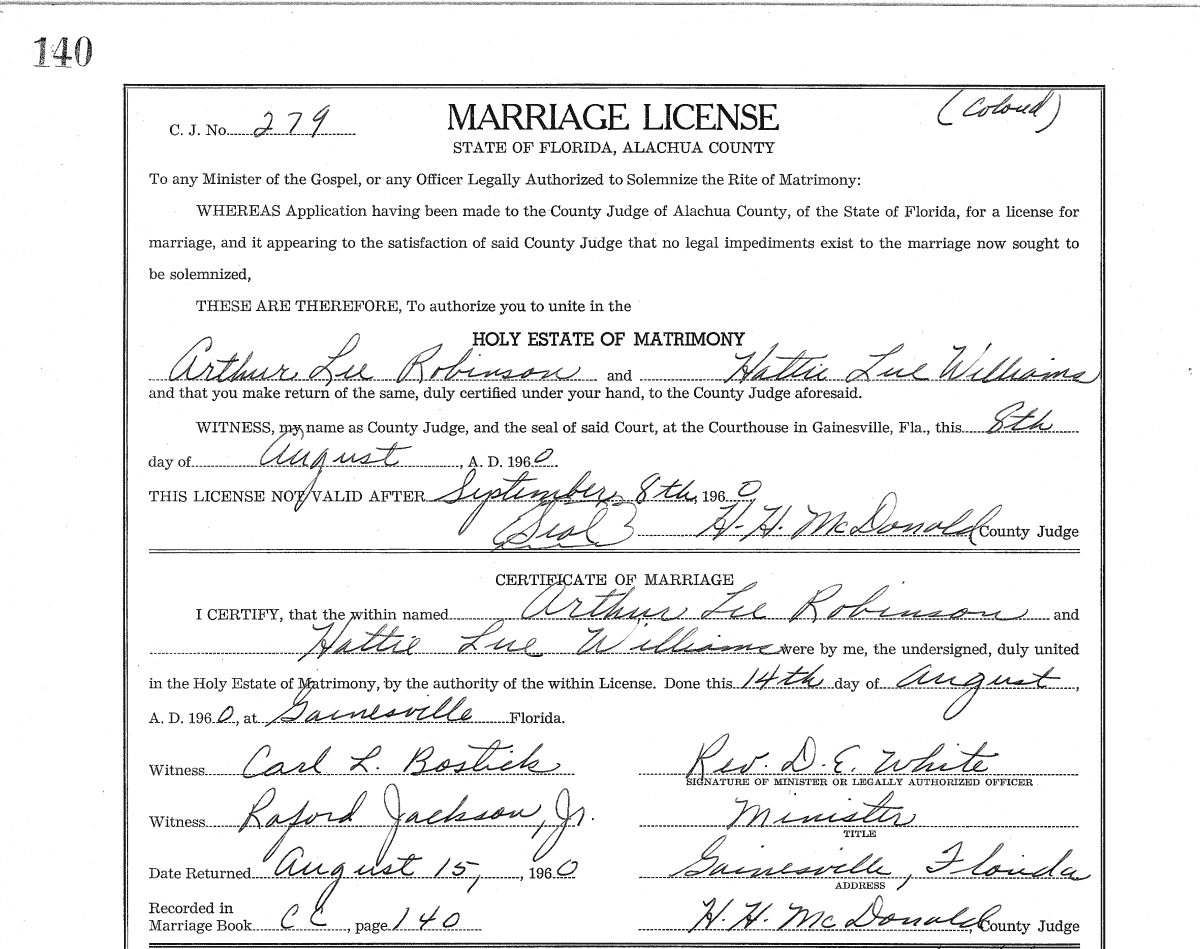 140
C. J. No. 279
MARRIAGE LICENSE
(Colored)
STATE OF FLORIDA, ALACHUA COUNTY
To any Minister of the Gospel, or any Officer Legally Authorized to Solemnize the Rite of Matrimony:
WHEREAS Application having been made to the County Judge of Alachua County, of the State of Florida, for a license for
marriage, and it appearing to the satisfaction of said County Judge that no legal impediments exist to the marriage now sought to
be solemnized,
THESE ARE THEREFORE, To authorize you to unite in the
HOLY ESTATE OF MATRIMONY
Arthur Lee Robinson and Hattie Lue Williams
and that you make return of the same, duly certified under your hand, to the County Judge aforesaid.
WITNESS, my name as County Judge, and the seal of said Court, at the Courthouse in Gainesville, Fla., this 8th
day of August, A. D. 1960.
THIS LICENSE NOT VALID AFTER September 8th, 1960,
(Seal) H. H. McDonald County Judge
CERTIFICATE OF MARRIAGE
I CERTIFY, that the within named Arthur Lee Robinson and
Hattie Lue Williams were by me, the undersigned, duly united
in the Holy Estate of Matrimony, by the authority of the within License. Done this 14th day of August,
A. D. 1960, at Gainesville Florida.
Witness Carl L. Bostick Rev. D. E. White
SIGNATURE OF MINISTER OR LEGALLY AUTHORIZED OFFICER
Witness Raford Jackson, Jr. Minister
TITLE
Date Returned August 15, , 1960 Gainesville, Florida
ADDRESS
Recorded in
Marriage Book CC, page 140 H. H. McDonald, County Judge